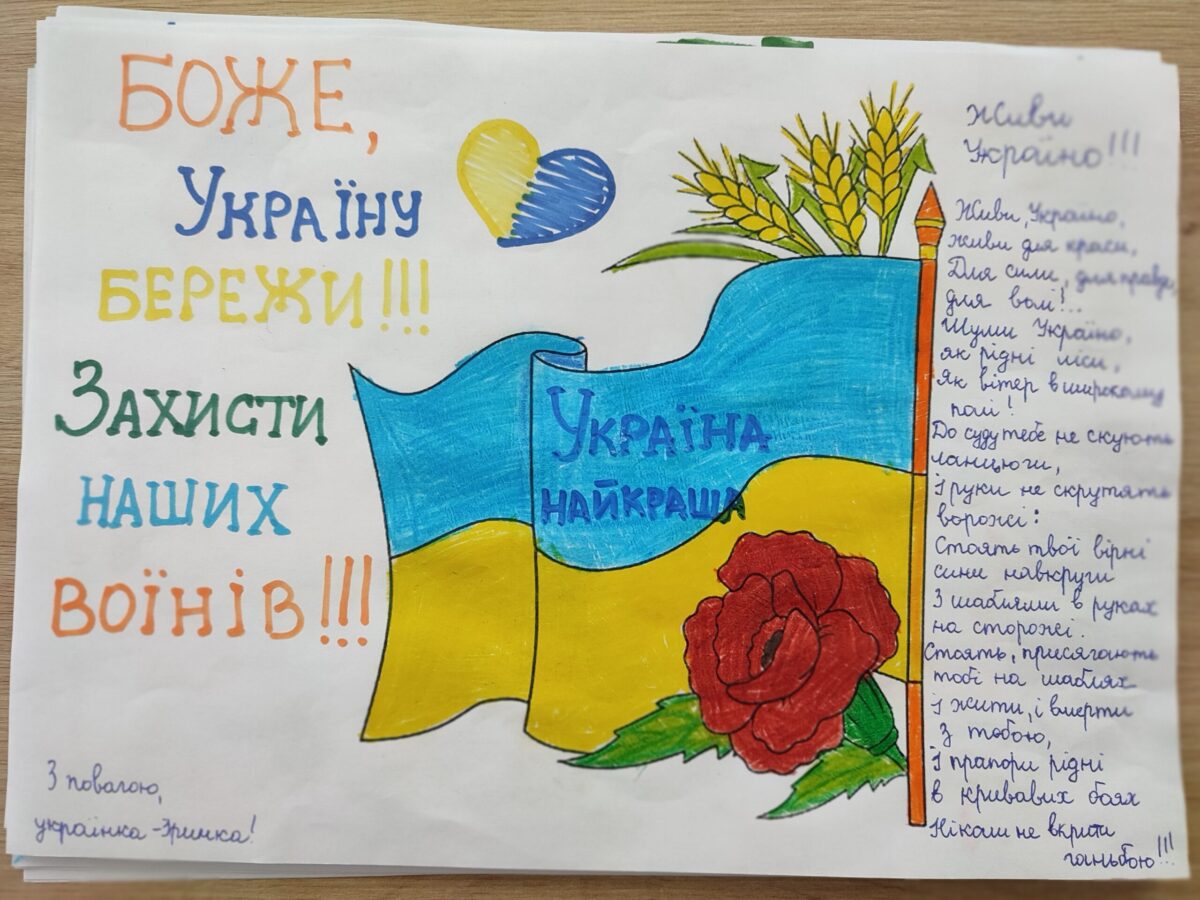 БОЖЕ,
УКРАЇНУ
БЕРЕЖИ!!!
ЗАХИСТИ
НАШИХ
ВОЇНІВ!!!
З повагою,
українка -Іринка!
УКРАЇНА
НАЙКРАЩА
Живи
Україно!!!
Живи, Україно,
живи для краси,
Для сили, для правди,
для волі!..
Шуми Україно,
як рідні ліси,
Як вітер в широкому
полі!
До суду тебе не скують
ланцюги,
І руки не скрутять
ворожі:
Стоять твої вірні
сини навкруги
З шаблями в руках
на сторожі.
Стоять, присягають
тобі на шаблях
І жити, і вмерти
з тобою,
І прапори рідні
в кривавих боях
Ніколи не вкрити
ганьбою!!!